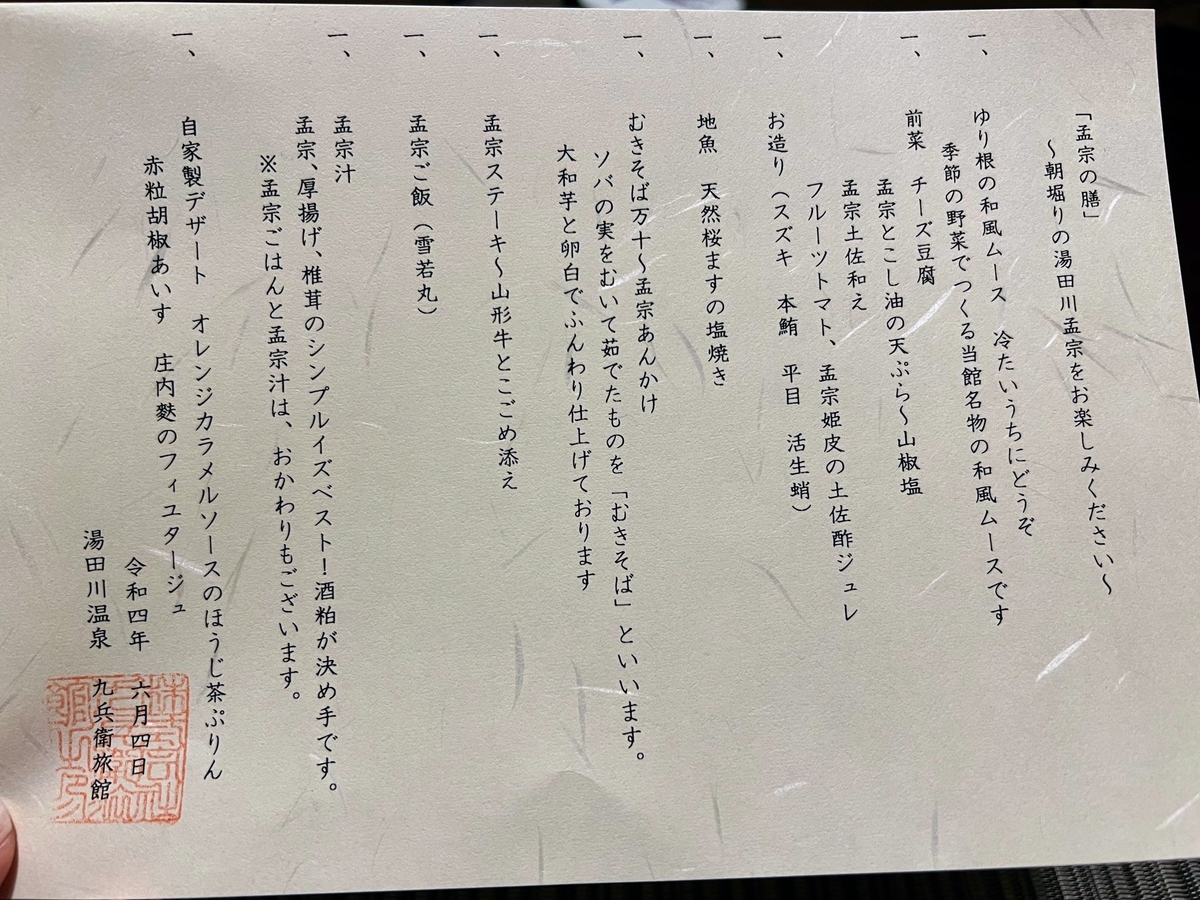 「孟宗の膳」
～朝堀りの湯田川孟宗をお楽しみください～
一、ゆり根の和風ムース　冷たいうちにどうぞ
季節の野菜でつくる当館名物の和風ムースです
一、前菜　チーズ豆腐
孟宗とこし油の天ぷら～山椒塩
孟宗土佐和え
フルーツトマト、孟宗姫皮の土佐酢ジュレ
一、お造り（スズキ　本鮪　平目　活生蛸）
一、地魚　天然桜ますの塩焼き
一、むきそば万十～孟宗あんかけ
ソバの実をむいて茹でたものを「むきそば」といいます。
大和芋と卵白でふんわり仕上げております
一、孟宗ステーキ～山形牛とこごめ添え
一、孟宗ご飯（雪若丸）
一、孟宗汁
孟宗、厚揚げ、椎茸のシンプルイズベスト！酒粕が決め手です。
※孟宗ごはんと孟宗汁は、おかわりもございます。
一、自家製デザート　オレンジカラメルソースのほうじ茶ぷりん
赤粒胡椒あいす　庄内麩のフィユタージュ
令和四年　六月四日
湯田川温泉　九兵衛旅館